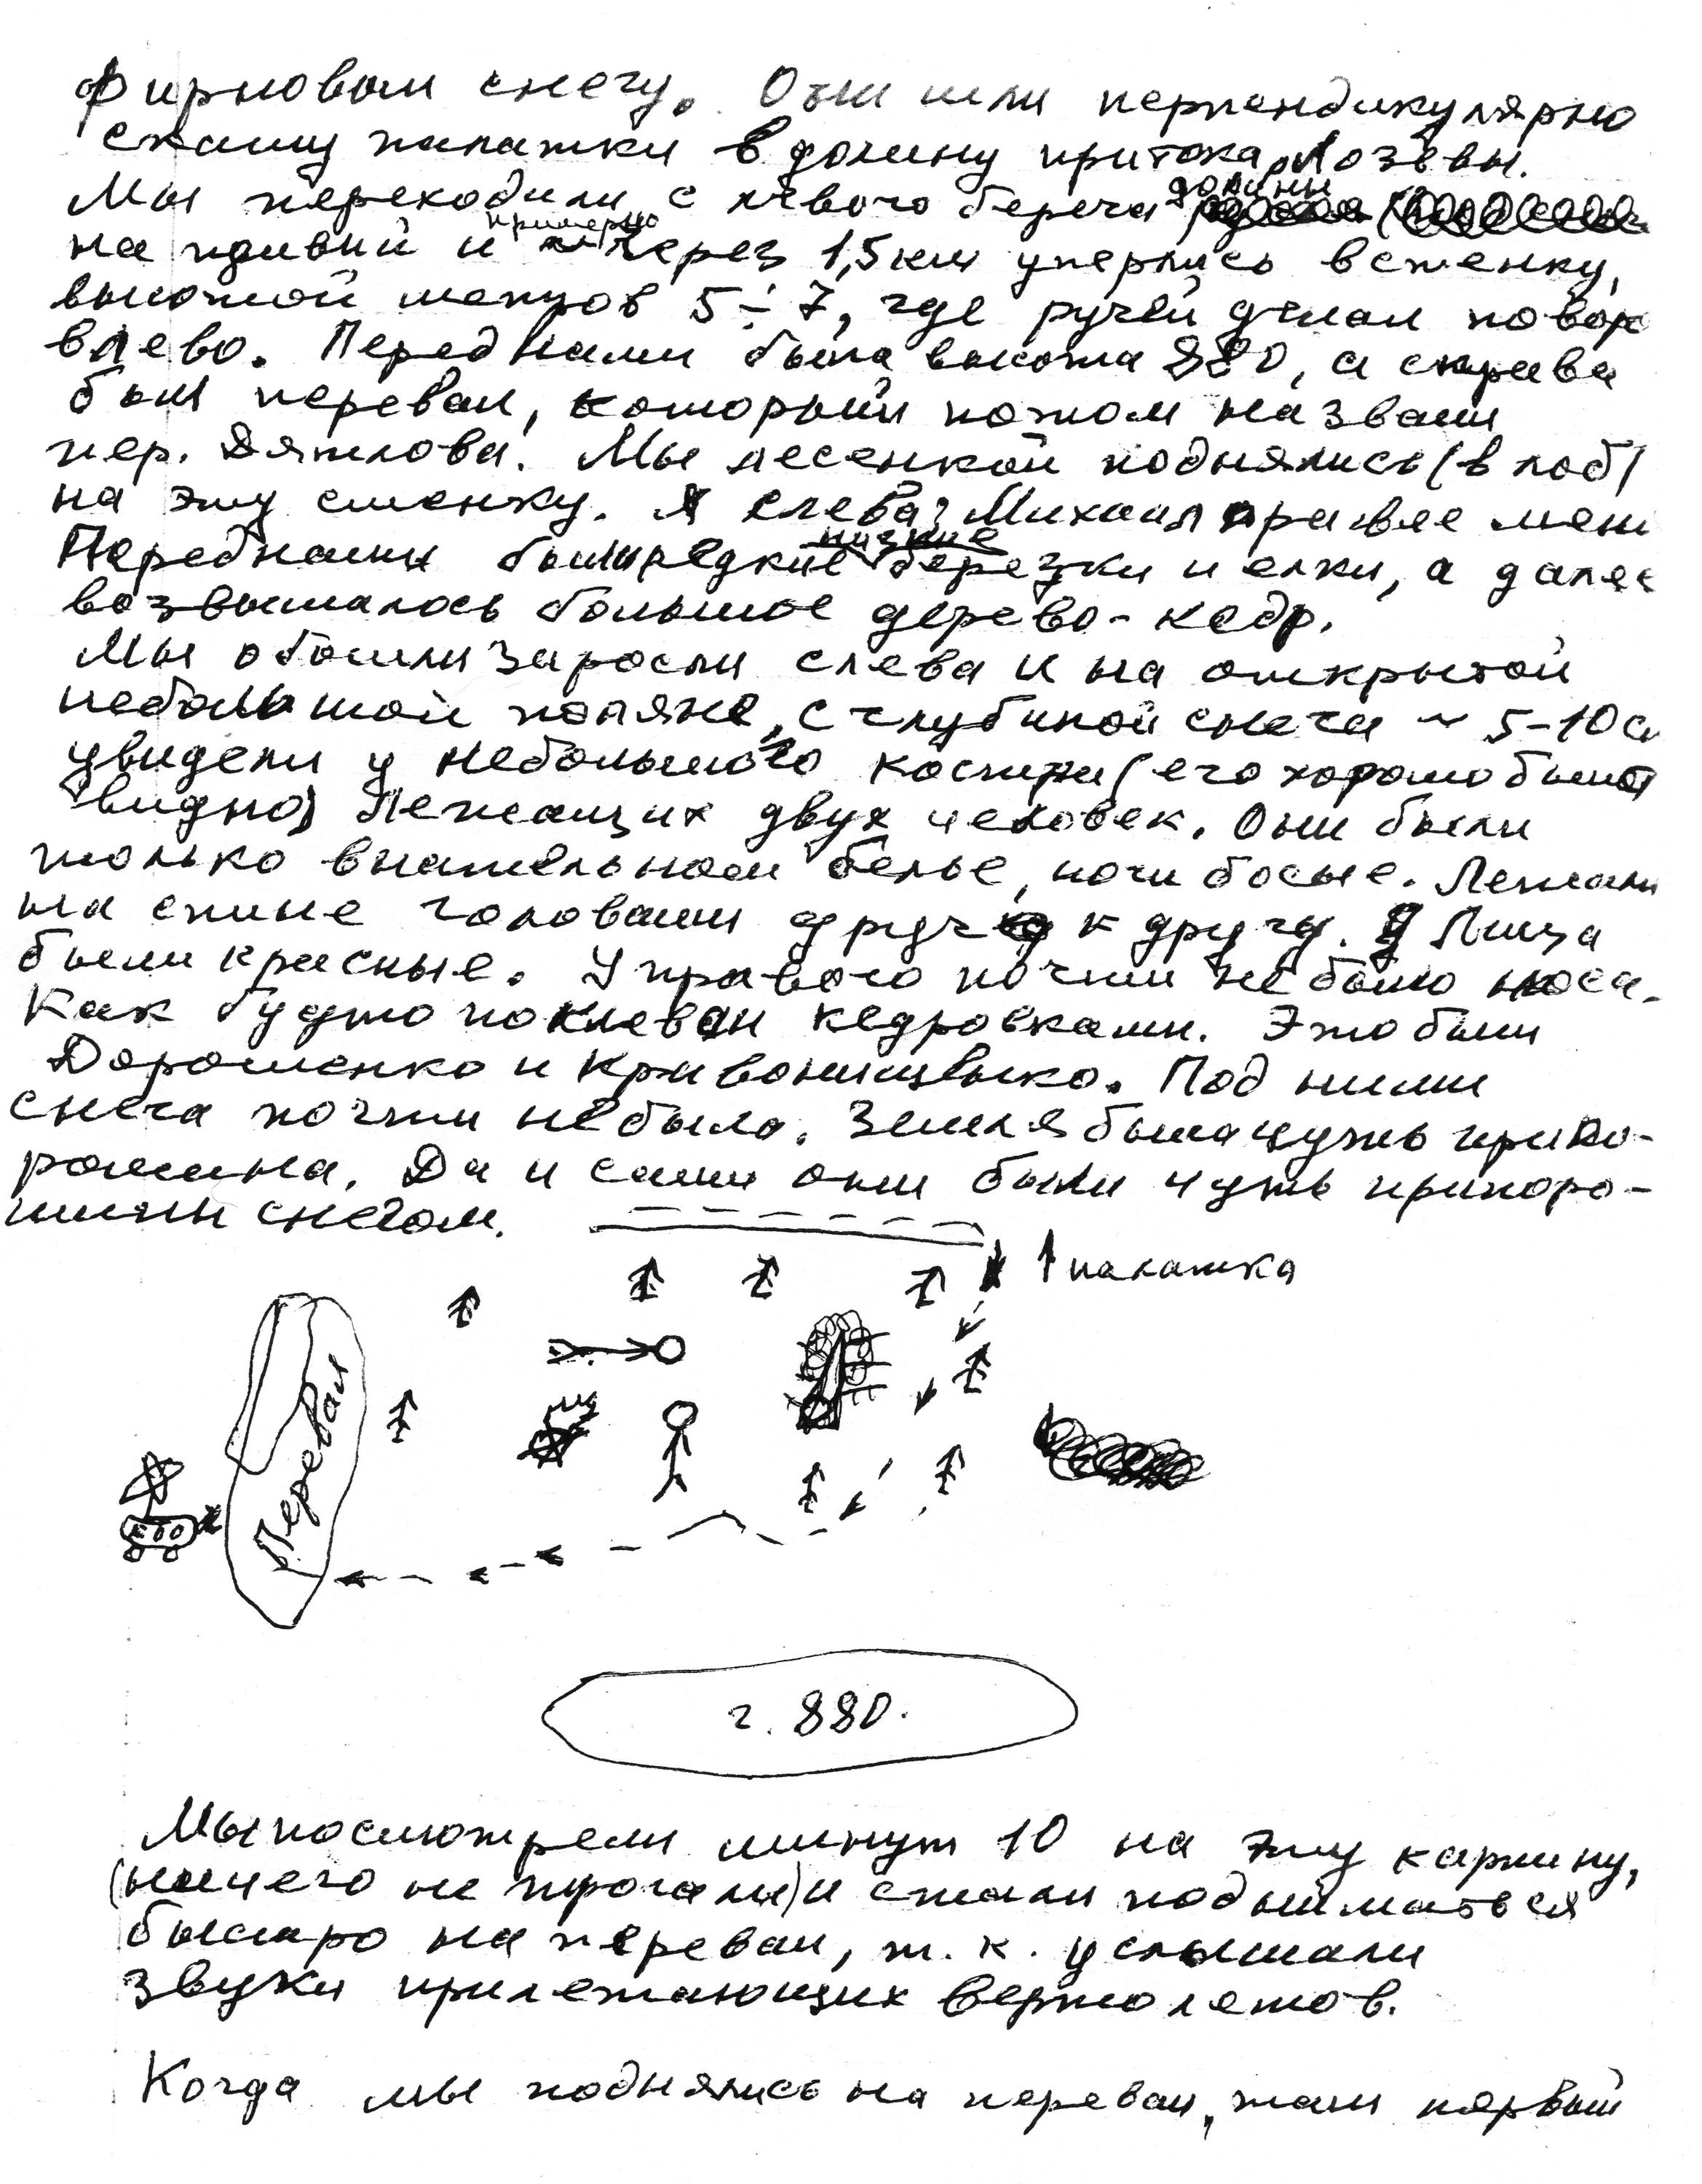 фирновом снегу. Они шли перпендикулярно
скату палатки в долину притока р. Лозьвы.
Мы переходили с левого берега долины
на правый и примерно через 1,5 км уперлись в стенку,
высотой метров 5÷7, где ручей делал повор
влево. Перед нами была высота 880, а справа
был перевал, который потом назвали
пер. Дятлова. Мы лесенкой поднялись (в лоб)
на эту стенку. Я слева, Михаил правее меня
Перед нами были редкие низкие березки и елки, а далее
возвышалось большое дерево - кедр.
Мы обошли заросли слева и на открытой
небольшой поляне, с глубиной снега ~ 5-10 см
увидели у небольшого костра (его хорошо было
видно) лежащих двух человек. Они были
только в нательном белье, ноги босые. Лежали
на спине головами друг к другу. Лица
были красные. У правого почти не было носа.
Как будто поклеван кедровками. Это были
Дорошенко и Кривонищенко. Под ними
снега почти не было. Земля была чуть припо-
рошена. Да и сами они были чуть припоро-
шены снегом.
↑ палатка
Перевал
г. 880.
Мы посмотрели минут 10 на эту картину,
(ничего не трогали) и стали подыматься
быстро на перевал, т. к. услышали
звуки прилетающих вертолетов.
Когда мы поднялись на перевал, там первый